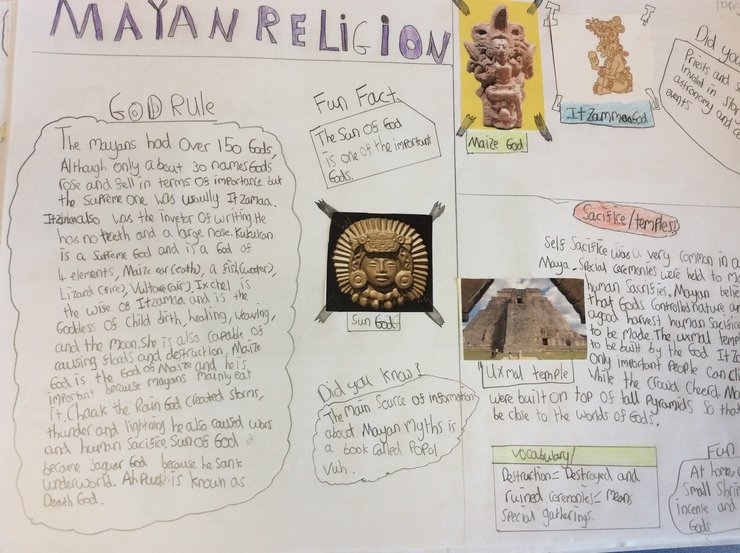 MAYAN RELIGION
GOD RULE
The mayans had over 150 Gods,
Although only about 30 names Gods
rose and fell in terms of importance but
the supreme one was usually Itzamaa.
Itzamaa also was the invetor of writing He
has no teeth and a large nose. Kukulkan
is a supreme God and is a God of
4 elements, Maize ear (eath), a fish (water),
Lizard (fire), Vulture (air), Ixchel is
the wife of Itzamaa and is the
Goddess of Child birth, healing, Weaving,
and the Moon. She is also capable of
causing floads and destruction, Maize
God is the God of Maize and he is
important because mayans mainly eat
it. Chaak the Rain God created storms,
thunder and lightning he also caused wars
and human Sacifice Sun of God
became jaguar God because he sank
underworld. Ah Puch is known as
Death God.
Fun Fact
The Sun of God
is one of the important
Gods.
Sun God
Did you know?
The main source of information
about Mayan Myths is
a book called POPOL
Vuh.
Maize God
Itzamman God
Did you
Priests and
invold in
astronomy and
events
Sacifice/temples
Self Sacifice was a very common in
Maya. Special ceremonies were held to
human Sacrifies. Mayan
that Gods Controlled nature
a good harvest human Sacifice
to be Mode. The uxmal
to be built by the God
Only important People can
While the crowd Cheerd.
Uxmal temple
were built on top of tall Pyramids so that
be close to the worlds of Gods.
Vocabulary
Destruction = Destroyed and
ruined. ceremonies = means
special gatherings.
Fun
At home,
Small
incense and
Gods